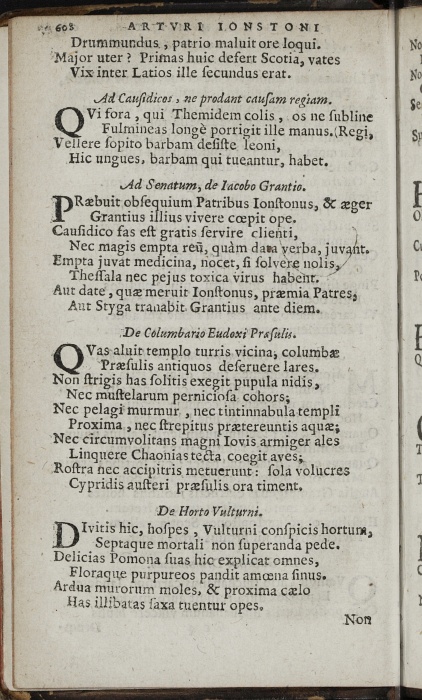 608 ARTVRI IONSTONI
Drummundus, patrio maluit ore loqui.
Major uter? Primas huic defert Scotia, vates
Vix inter Latios ille secundus erat.
Ad Causidicos, ne prodant causam regiam.
QVi fora, qui Themidem colis, os ne subline
Fulmineas longè porrigit ille manus. (Regi,
Vellere sopito barbam desiste leoni,
Hic ungues, barbam qui tueantur, habet.
Ad Senatum, de Iacobo Grantio.
PRæbuit obsequium Patribus Ionstonus, & æger
Grantius illius vivere cœpit ope.
Causidico fas est gratis servire clienti,
Nec magis empta reũ, quàm data verba, juvant.
Empta juvat medicina, nocet, si solvere nolis,
Thessala nec pejus toxica virus habent.
Aut date, quæ meruit Ionstonus, præmia Patres,
Aut Styga tranabit Grantius ante diem.
De Columbario Eudoxi Præsulis.
QVas aluit templo turris vicina, columbæ
Præsulis antiquos deseruere lares.
Non strigis has solitis exegit pupula nidis,
Nec mustelarum perniciosa cohors;
Nec pelagi murmur, nec tintinnabula templi
Proxima, nec strepitus prætereuntis aquæ;
Nec circumvolitans magni Iovis armiger ales
Linquere Chaonias tecta coegit aves;
Rostra nec accipitris metuerunt: sola volucres
Cypridis austeri præsulis ora timent.
De Horto Vulturni.
DIvitis hic, hospes, Vulturni conspicis hortum,
Septaque mortali non superanda pede.
Delicias Pomona suas hic explicat omnes,
Floraque purpureos pandit amœna sinus.
Ardua murorum moles, & proxima cælo
Has illibatas saxa tuentur opes.
Non